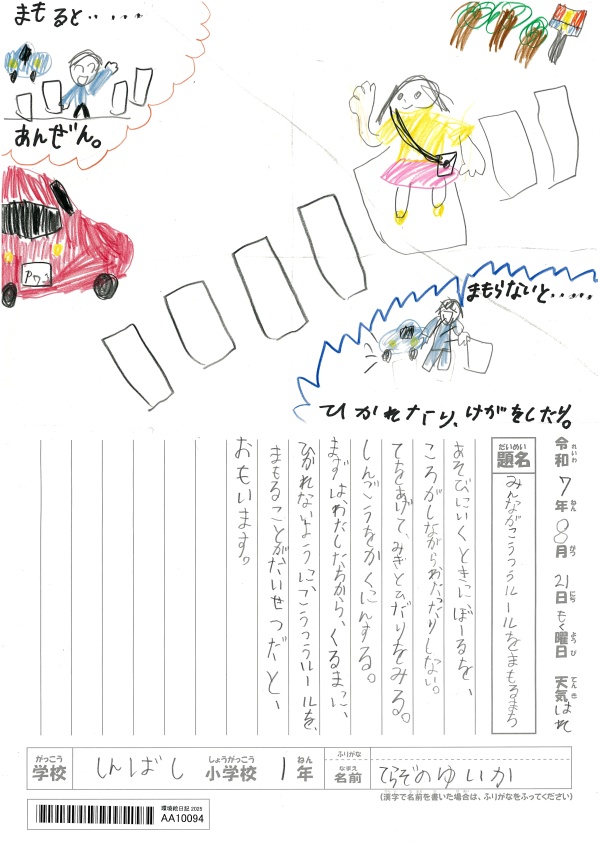 まもると・・・・・
あんぜん。
まもらないと・・・・・
ひかれたり、けがをしたり。
令和 7年 8月 21日 もく曜日 天気 はれ
れいわ ねん がつ にち ようび てんき
だいめい
題名 みんながこうつうルールをまもるまち
あそびにいくときにぼーるを、
ころがしながらわたったりしない。
てをあげて、みぎとひだりをみる。
しんごうをかくにんする。
まずは、わたしたちから、くるまに、
ひかれないように、こうつうルールを、
まもることがたいせつだと、
おもいます。
がっこう しょうがっこう ねん ふりがな
学校 しんばし 小学校 1年
なまえ
名前 てらぞのゆいか
(漢字で名前を書いた場合は、ふりがなをふってください)
環境絵日記2025
AA10094